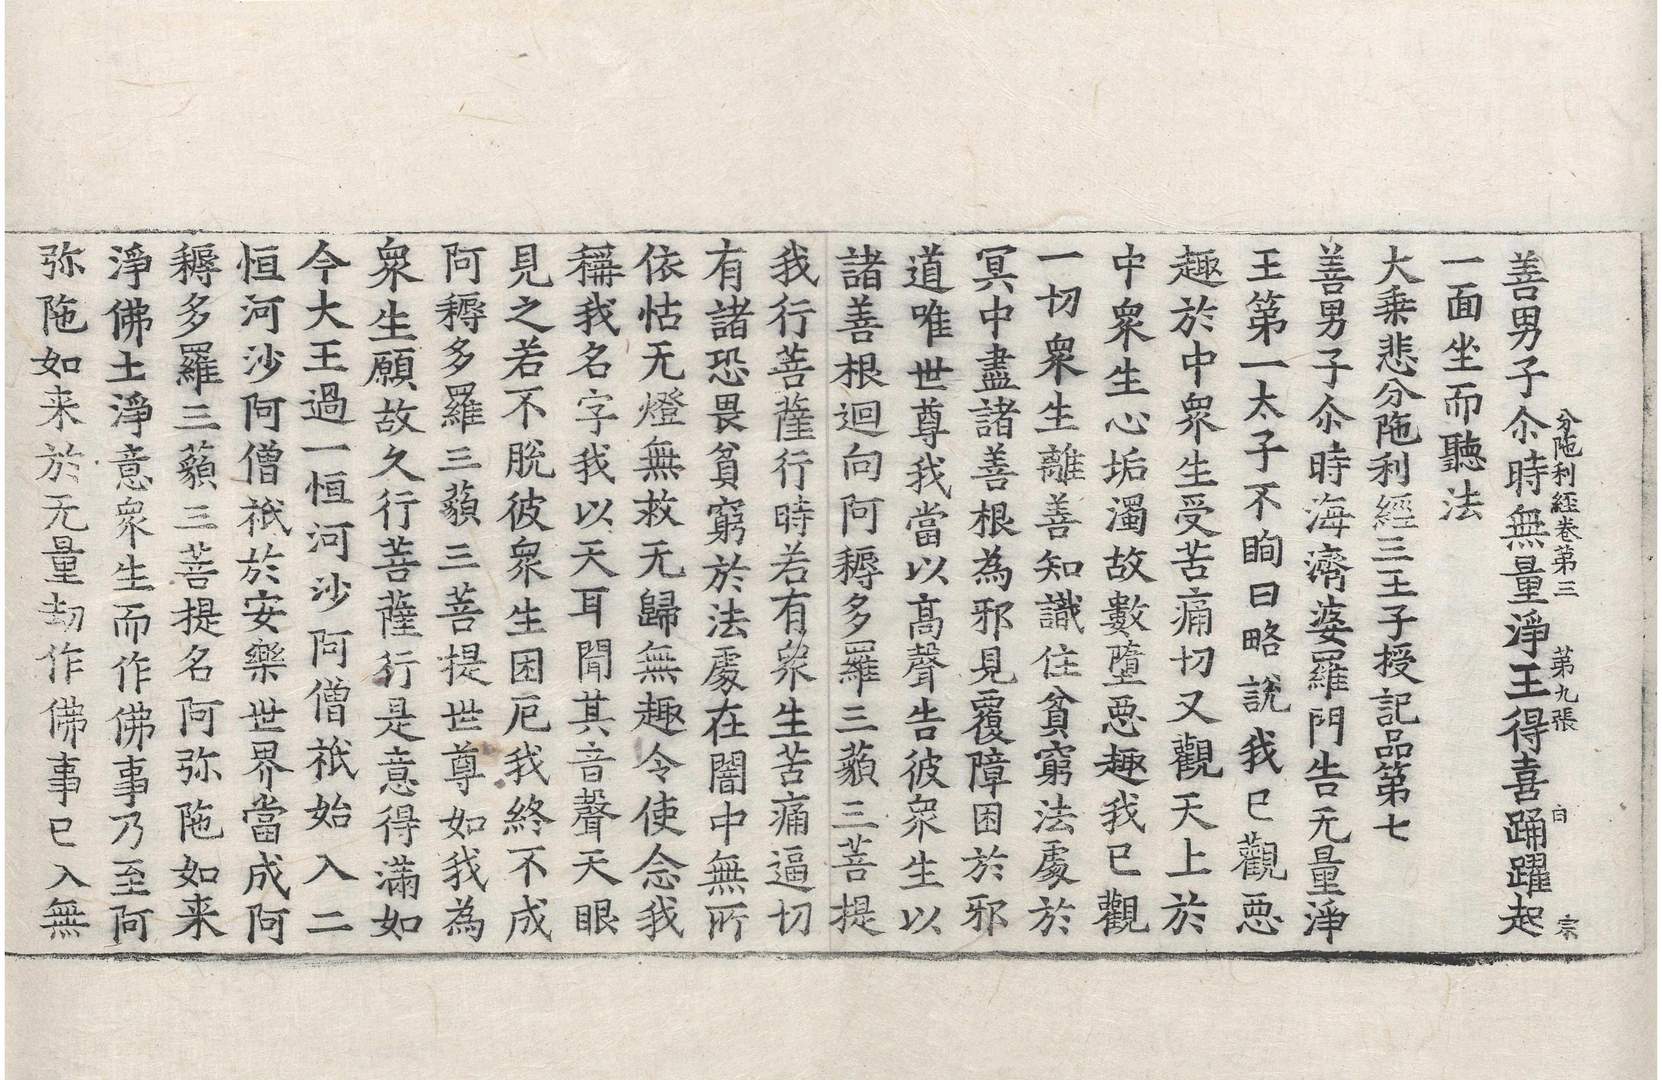 分陁利經卷第三 第九張 白 宗
善男子尒時無量淨王得喜踊躍起
一面坐而聽法
大乗悲分陁利經三王子授記品第七
善男子尒時海濟婆羅門告无量淨
王第一太子不眴曰略說我已觀惡
趣於中衆生受苦痛切又觀天上於
中衆生心垢濁故數墮惡趣我已觀
一切衆生離善知識住貧窮法處於
冥中盡諸善根為邪見覆障困於邪
道唯世尊我當以髙聲告彼衆生以
諸善根迴向阿耨多羅三藐三菩提
我行菩薩行時若有衆生苦痛逼切
有諸恐畏貧窮於法處在闇中無所
依怙无燈無救无歸無趣令使念我
稱我名字我以天耳聞其音聲天眼
見之若不脫彼衆生困厄我終不成
阿耨多羅三藐三菩提世尊如我為
衆生願故久行菩薩行是意得滿如
今大王過一恒河沙阿僧祇始入二
恒河沙阿僧祇於安樂世界當成阿
耨多羅三藐三菩提名阿弥陁如来
淨佛土淨意衆生而作佛事乃至阿
弥陁如来於无量劫作佛事已入無